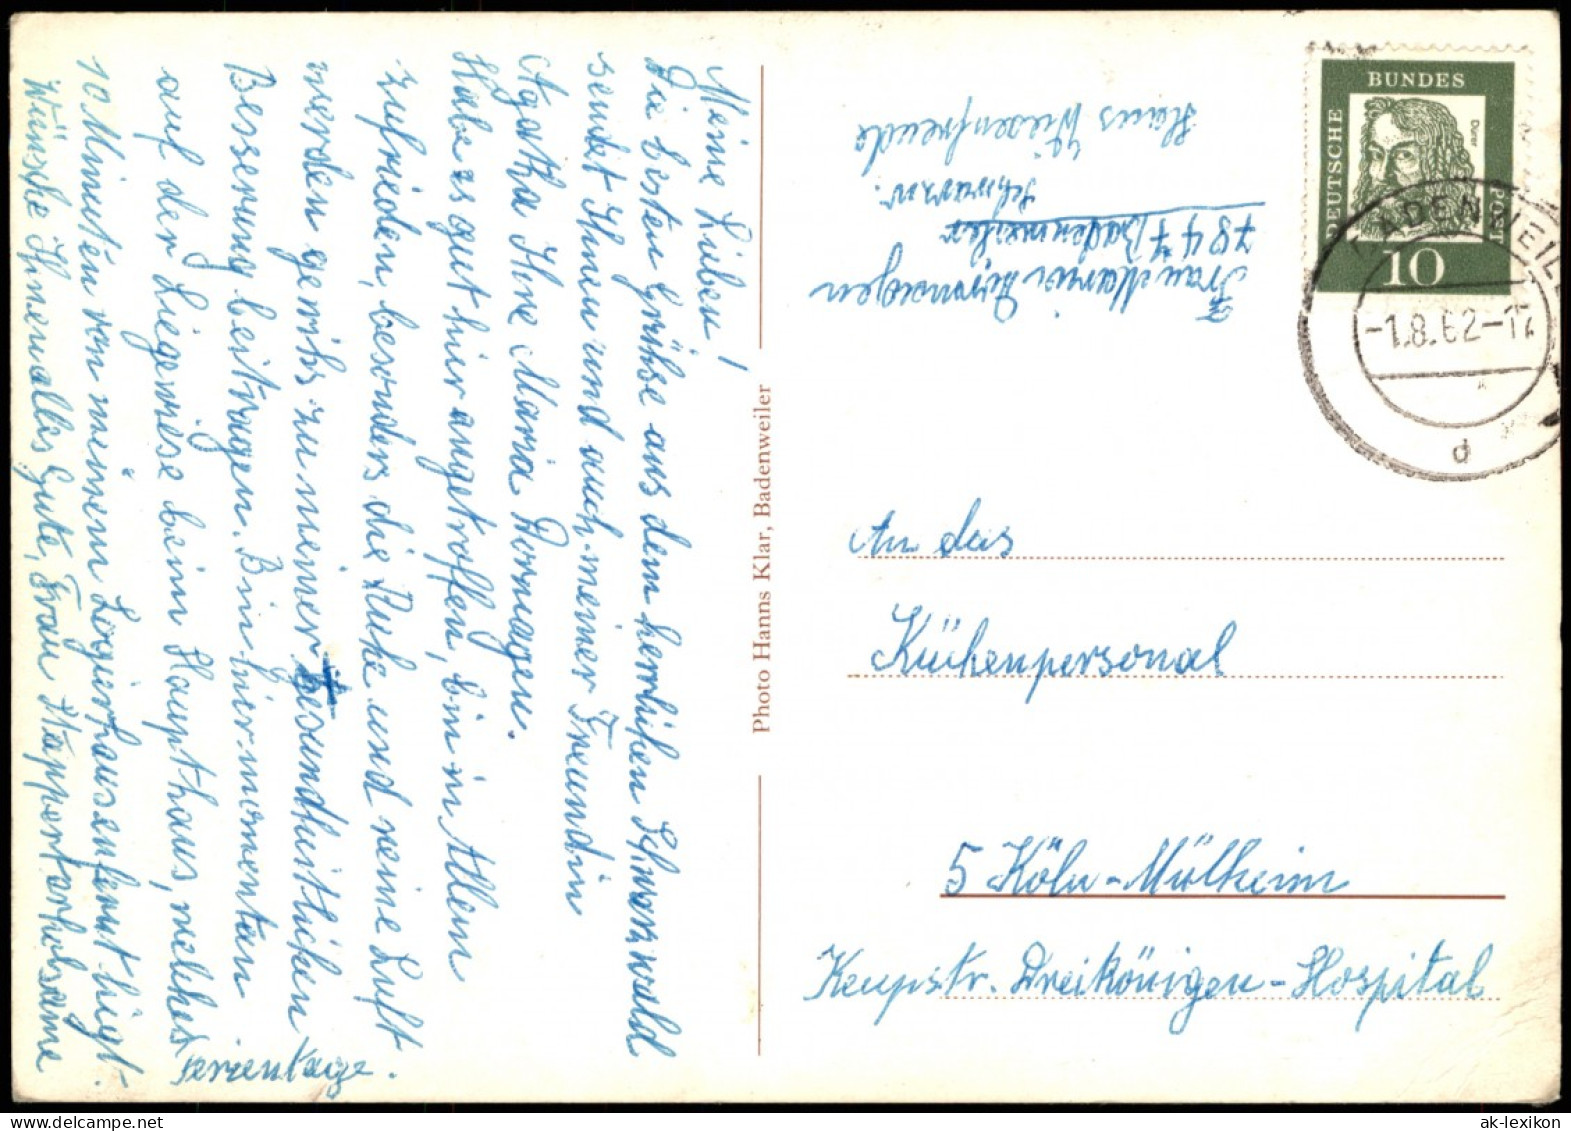 Meine Lieben!
Die besten Grühse aus dem herrlichen Schwarzwald
sendet Ihnen und auch meiner Freundin
Agatha Ihre Maria Dormagen.
Habe es gut hier angetroffen, bin in Allem
zufrieden, besonders die Ruhe und reine Luft
werden gewihs zu meiner gesundheitlichen
Besserung beitragen. Bin hier momentan
auf der Liegewiese beim Haupthaus, welches
10 Minuten von meinem Logierhaus entfernt liegt.
Wünsche Ihnen alles Gute, Frau Stappert erholsame
Ferientage.
Photo Hanns Klar, Badenweiler
Frau Maria Dormagen
7847 Badenweiler
Schwarzw.
Haus Wiesenfreude
DEUTSCHE
BUNDES
POST
Dürer
10
BADENWEILE
-1.8.62-17
d
An das
Küchenpersonal
5 Köln-Mülheim
Keupstr. Dreikönigen-Hospital
ak-lexikon